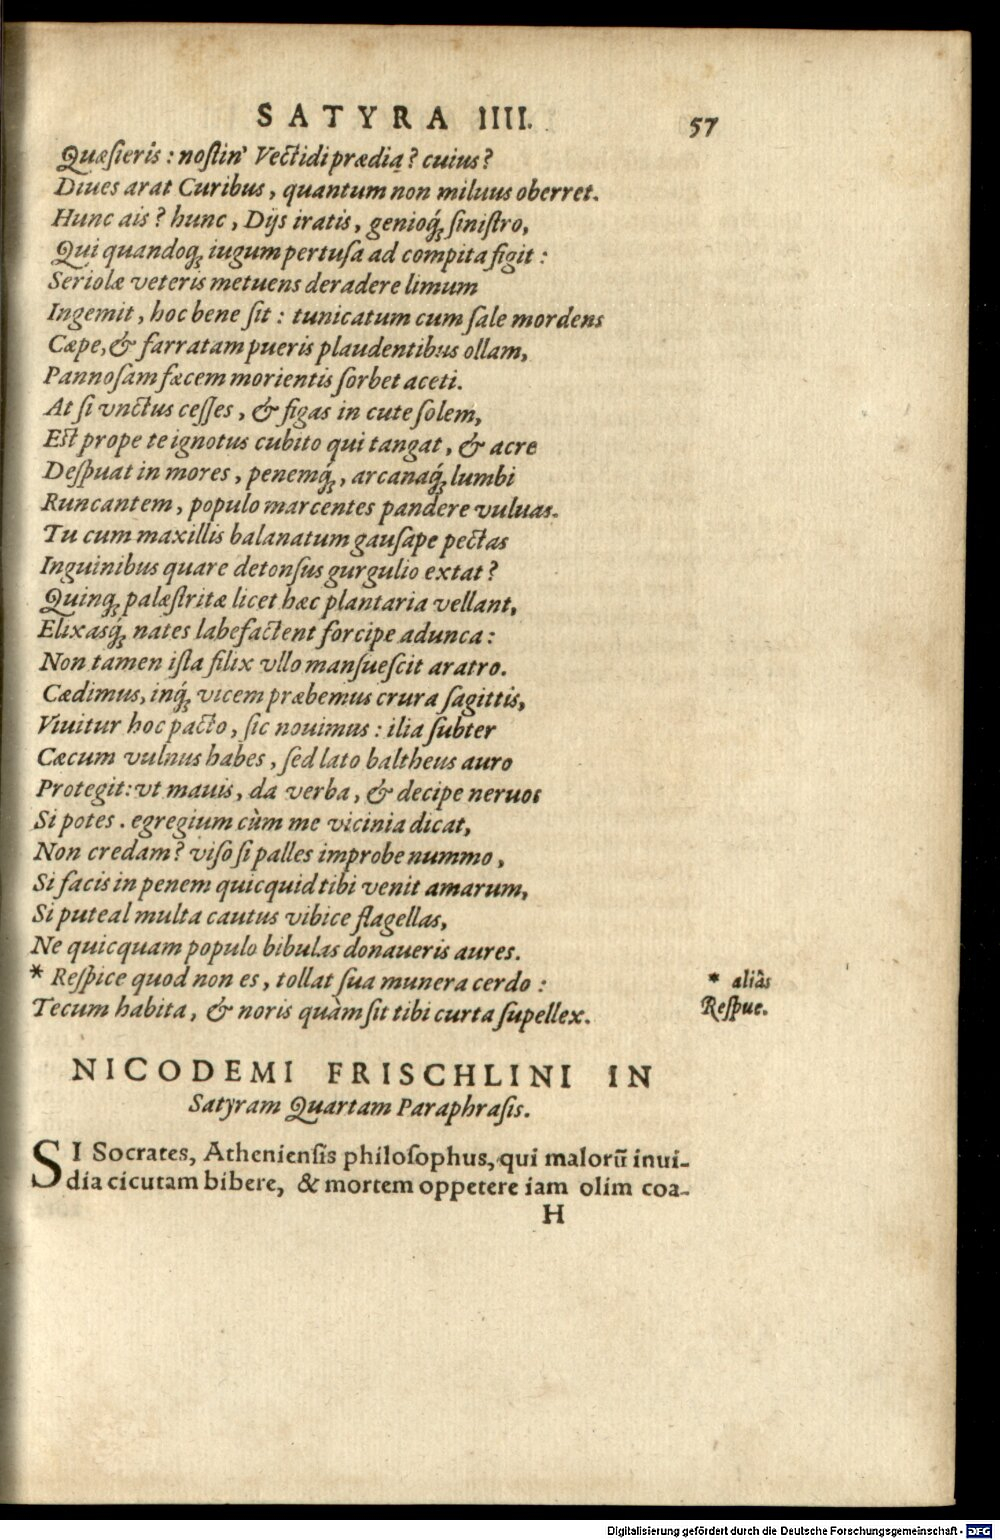 SATYRA IIII. 57
Quæsieris: nostin' Vectidi prædia? cuius?
Diues arat Curibus, quantum non miluus oberret.
Hunc ais? hunc, Dijs iratis, genioq́; sinistro,
Qui quandoq; iugum pertusa ad compita figit:
Seriolæ veteris metuens deradere limum
Ingemit, hoc bene sit: tunicatum cum sale mordens
Cæpe, & farratam pueris plaudentibus ollam,
Pannosam fæcem morientis sorbet aceti.
At si vnctus cesses, & figas in cute solem,
Est prope te ignotus cubito qui tangat, & acre
Despuat in mores, penemq́;, arcanaq́; lumbi
Runcantem, populo marcentes pandere vuluas.
Tu cum maxillis balanatum gausape pectas
Inguinibus quare detonsus gurgulio extat?
Quinq; palæstritæ licet hæc plantaria vellant,
Elixasq́; nates labefactent forcipe adunca:
Non tamen ista filix vllo mansuescit aratro.
Cædimus, inq́; vicem præbemus crura sagittis,
Viuitur hoc pacto, sic nouimus: ilia subter
Cæcum vulnus habes, sed lato baltheus auro
Protegit: vt mauis, da verba, & decipe neruos
Si potes. egregium cùm me vicinia dicat,
Non credam? viso si palles improbe nummo,
Si facis in penem quicquid tibi venit amarum,
Si puteal multa cautus vibice flagellas,
Ne quicquam populo bibulas donaueris aures.
* Respice quod non es, tollat sua munera cerdo:
* aliàs
Respue.
Tecum habita, & noris quàm sit tibi curta supellex.
NICODEMI FRISCHLINI IN
Satyram Quartam Paraphrasis.
SI Socrates, Atheniensis philosophus, qui malorũ inui-
dia cicutam bibere, & mortem oppetere iam olim coa-
H
Digitalisierung gefördert durch die Deutsche Forschungsgemeinschaft - DFG